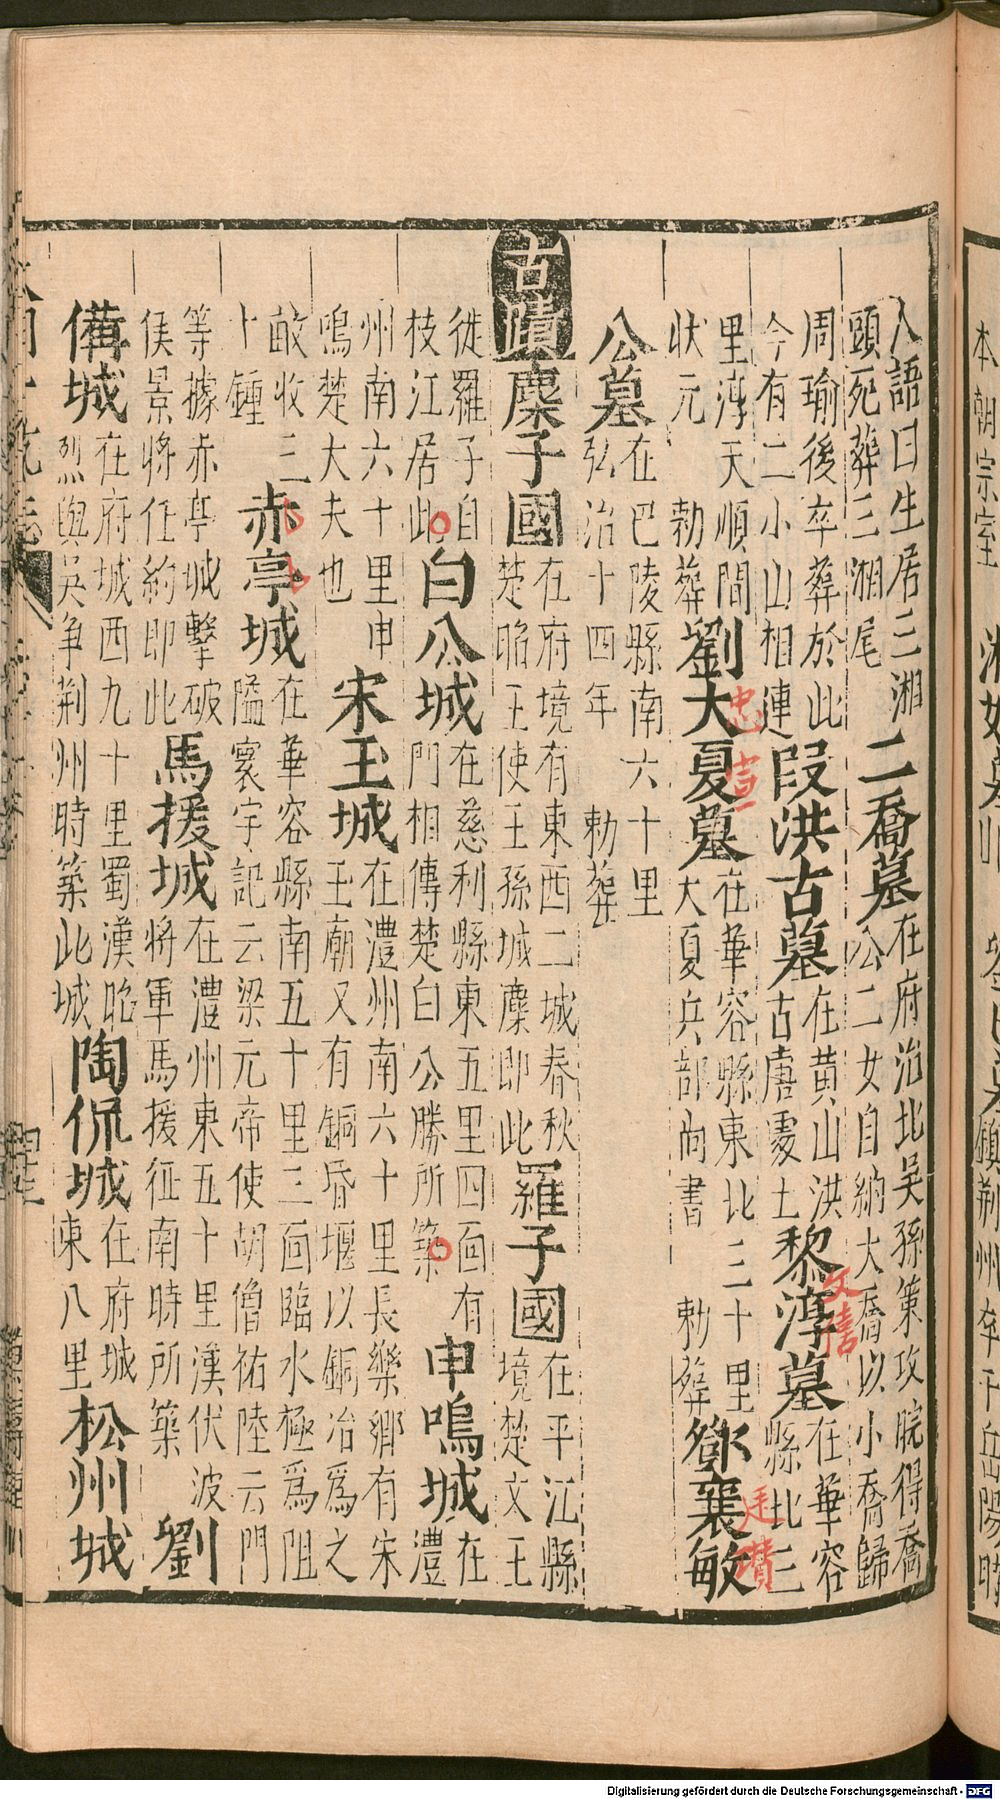 人語曰生居三湘
頭死葬三湘尾
二喬墓
在府治北吳孫策攻皖得喬
公二女自納大喬以小喬歸
周瑜後卒葬於此
今有二小山相連
叚洪古墓
在黃山洪
古唐處士
黎淳墓
文僖
在華容
縣北三
里淳天順間
狀元　勑葬
劉大夏墓
忠宣
在華容縣東北三十里
大夏兵部尚書　勅葬
鄧襄敏
廷瓚
公墓
在巴陵縣南六十里
弘治十四年　勅葬
古蹟
麋子國
在府境有東西二城春秋
楚昭王使王孫城麋即此
羅子國
在平江縣
境楚文王
徙羅子自
枝江居此
白公城
在慈利縣東五里四面有
門相傳楚白公勝所築
申鳴城
在
澧
州南六十里申
鳴楚大夫也
宋玉城
在澧州南六十里長樂鄉有宋
玉廟又有銅昏堰以銅冶爲之
畝收三
十鍾
赤亭城
在華容縣南五十里三面臨水極爲阻
隘寰宇記云梁元帝使胡僧祐陸云門
等據赤亭城擊破
侯景將任約即此
馬援城
在澧州東五十里漢伏波
將軍馬援征南時所築
劉
備城
在府城西九十里蜀漢昭
烈與吳爭荆州時築此城
陶侃城
在府城
東八里
松州城
Digitalisierung gefördert durch die Deutsche Forschungsgemeinschaft - DFG